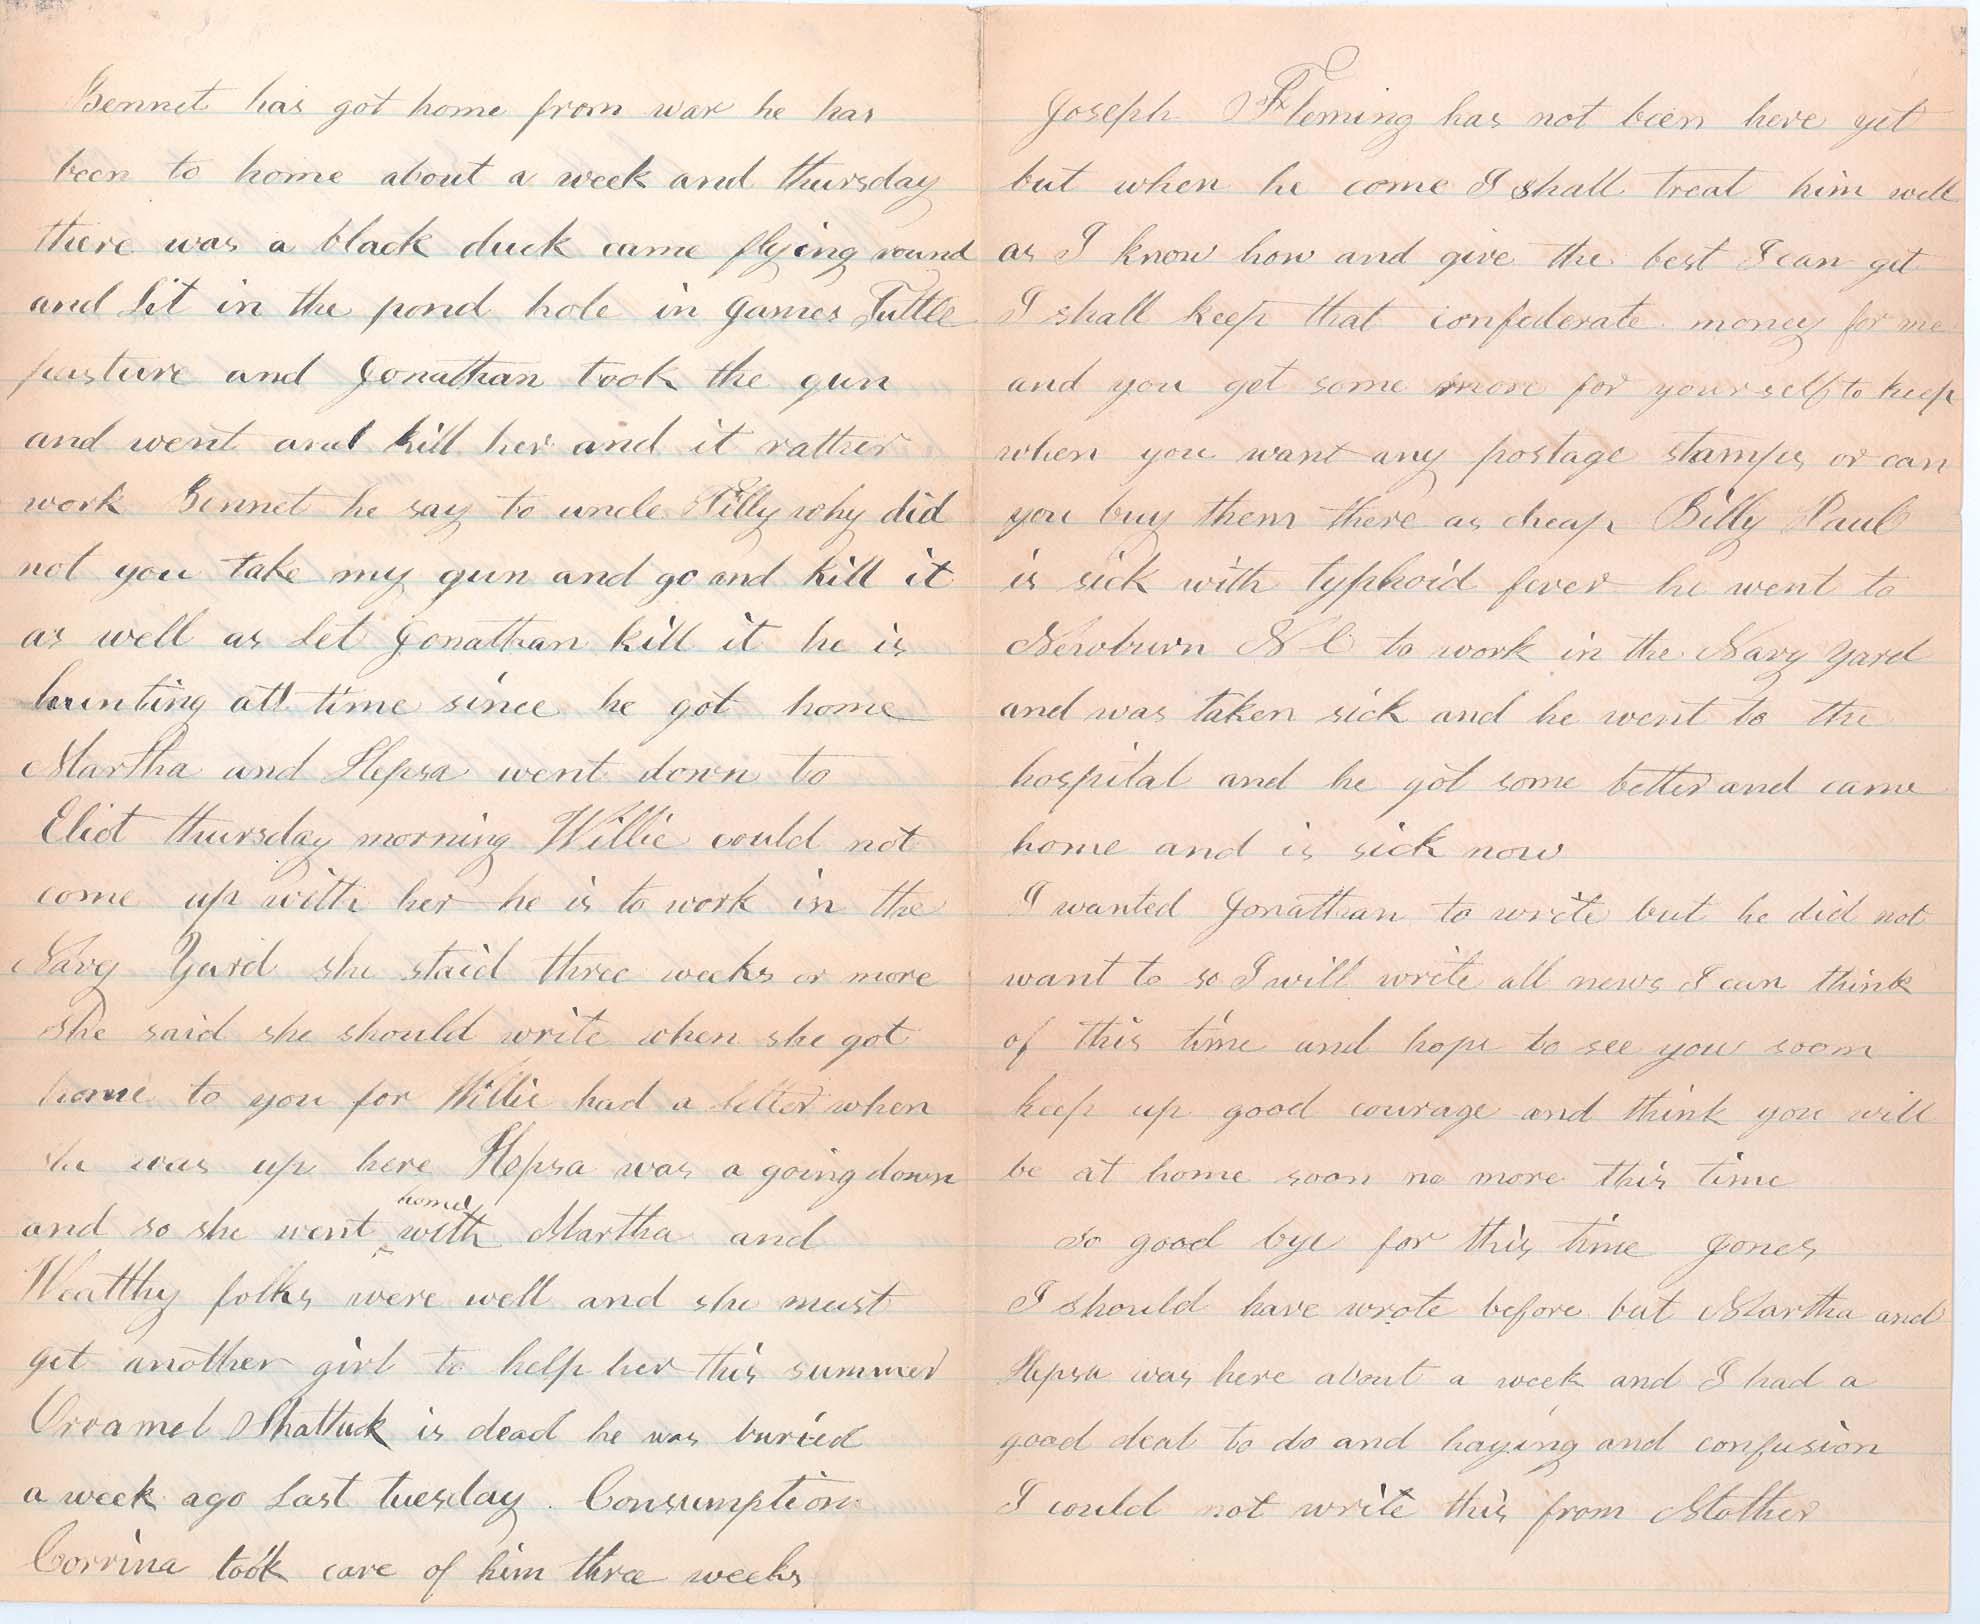 Bennet has got home from war he has
been to home about a week and thursday
there was a black duck came flying round
and lit in the pond hole in James Tuttle
pasture and Jonathan took the gun
and went and kill her and it rather
work Bennet he say to uncle Tilly why did
not you take my gun and go and kill it
as well as let Jonathan kill it he is
hunting all time since he got home
Martha and Hepsa went down to
Eliot thursday morning Willie could not
come up with her he is to work in the
Navy Yard she staid three weeks or more
She said she should write when she got
home to you for Willie had a letter when
she was up here Hepsa was a going down
and so she went home with Martha and
Wealthy folks were well and she must
get another girl to help her this summer
Orramel Shattuck is dead he was buried
a week ago last tuesday. Consumption
Corrina took care of him three weeks
Joseph Fleming has not been here yet
but when he come I shall treat him well
as I know how and give the best I can get
I shall keep that confederate money for me
and you get some more for your self to keep
when you want any postage stamps or can
you buy them there as cheap Billy Paul
is sick with typhoid fever he went to
Newburn N C to work in the Navy Yard
and was taken sick and he went to the
hospital and he got some better and came
home and is sick now
I wanted Jonathan to write but he did not
want to so I will write all news I can think
of this time and hope to see you soom
keep up good courage and think you will
be at home soon no more this time
So good bye for this time Jones
I should have wrote before but Martha and
Hepsa was here about a week and I had a
good deal to do and haying and confusion
I could not write this from Mother